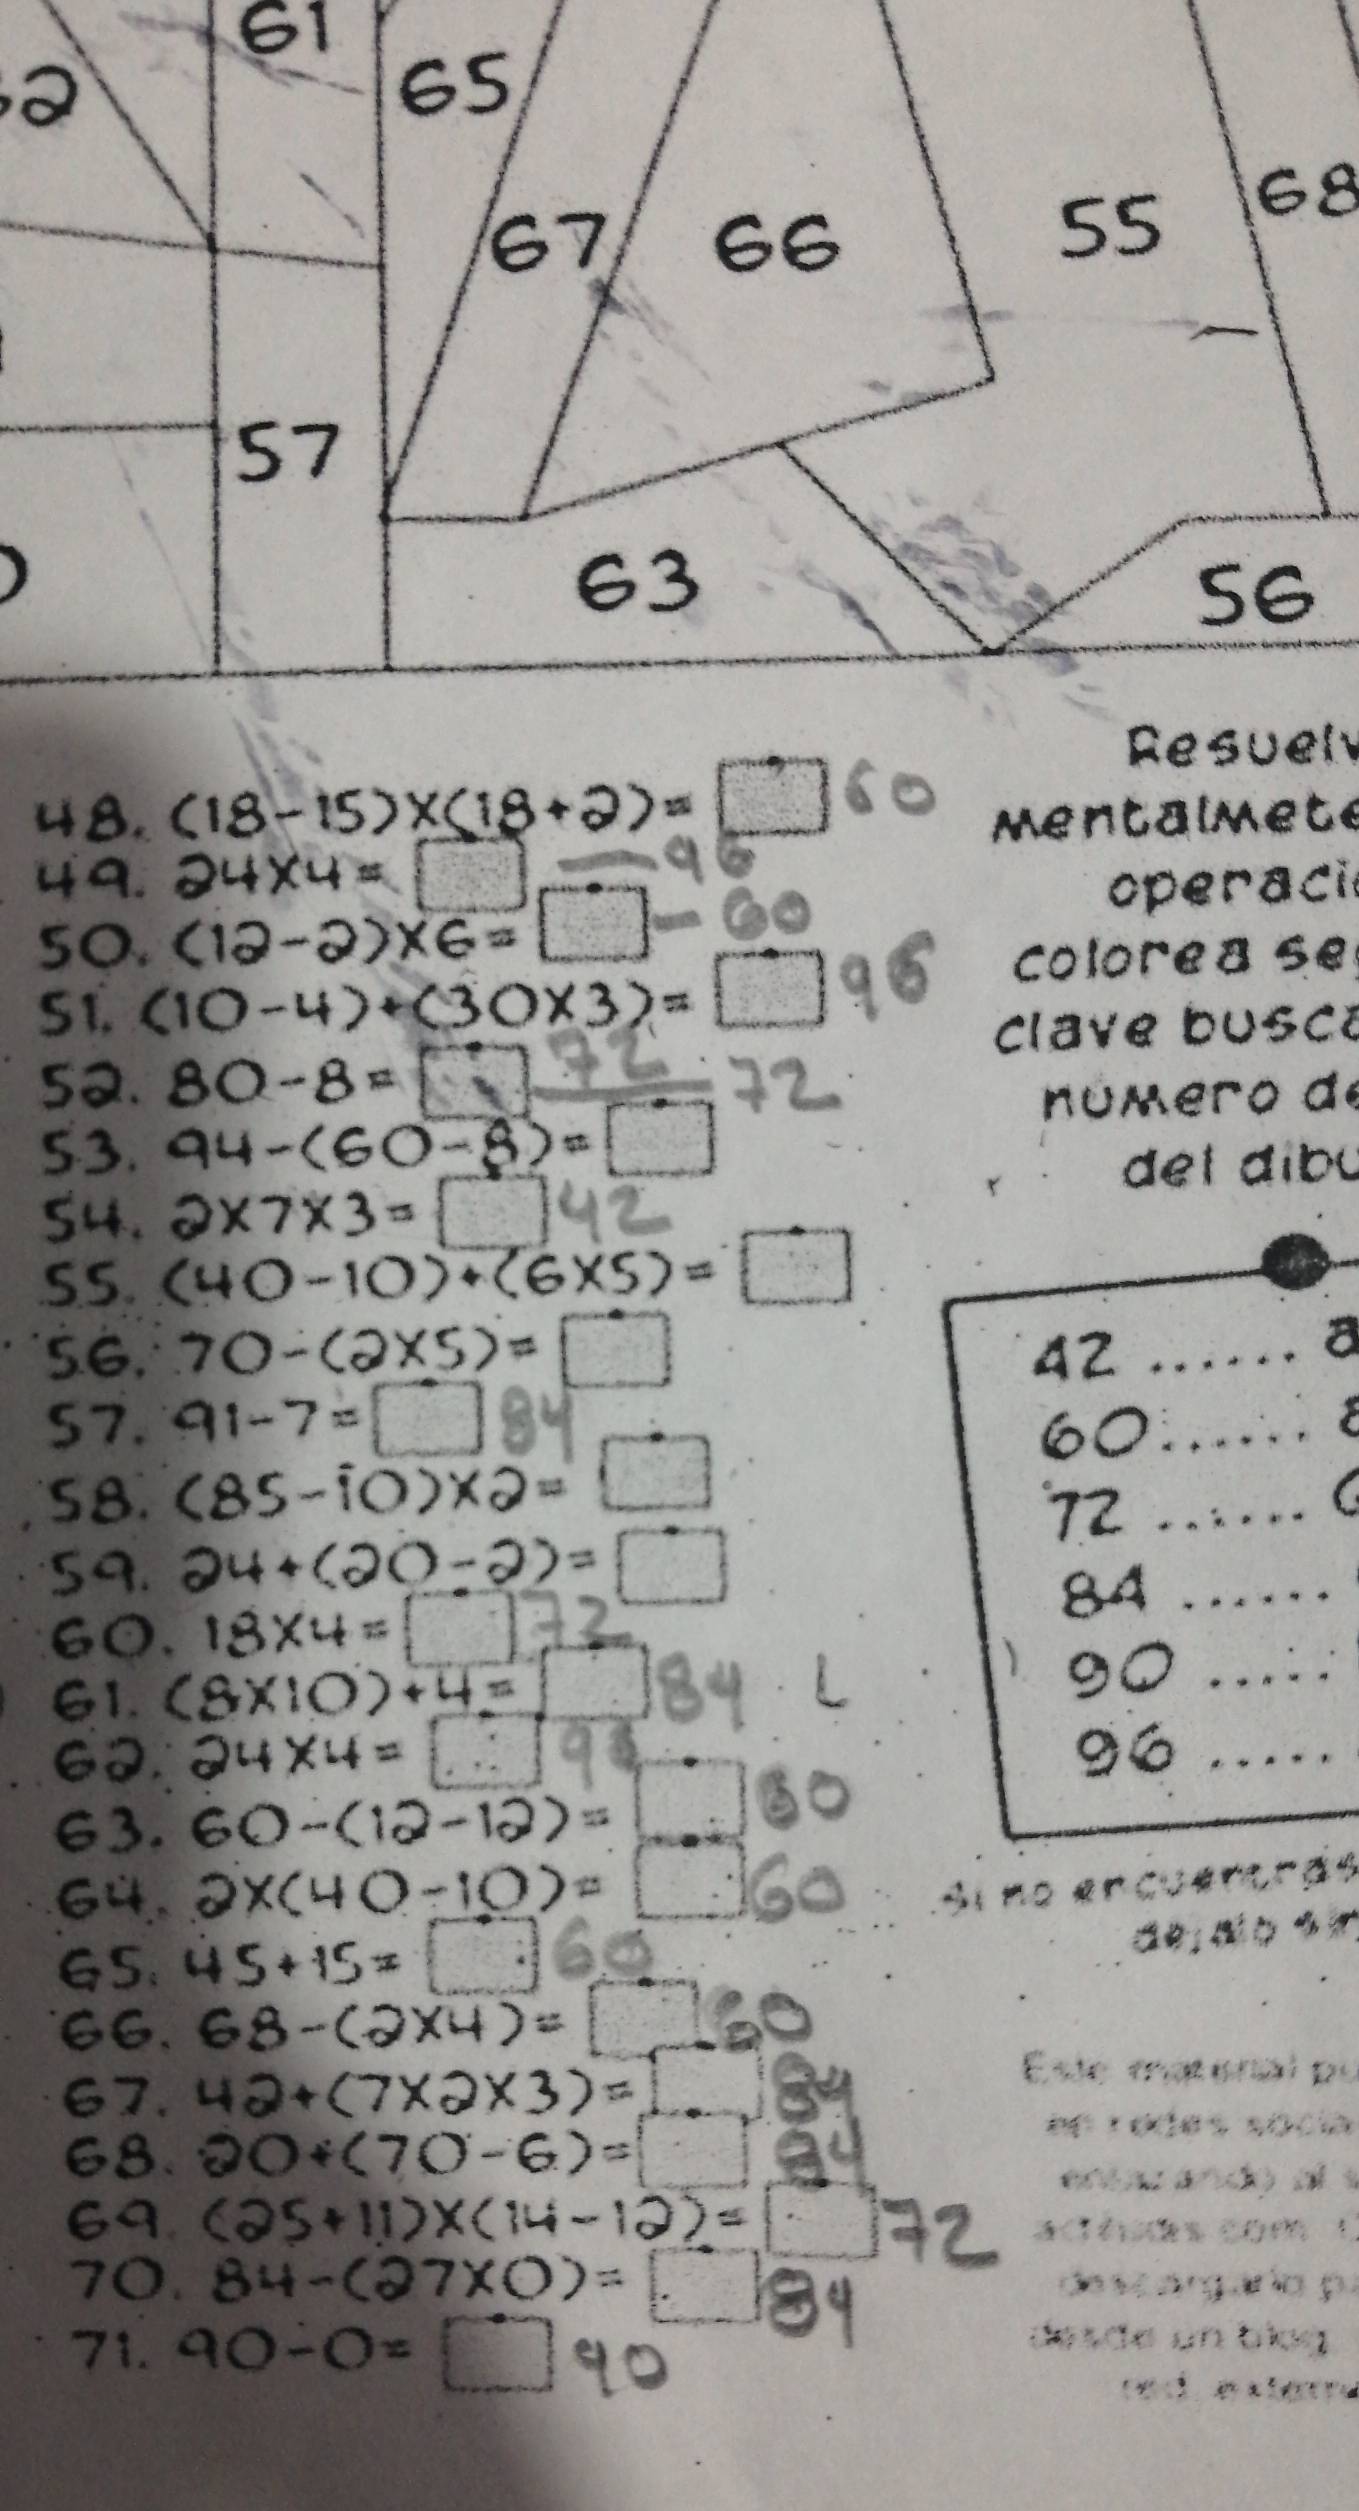 61
65
67
66
55
68
57
63
56
48. (18-15)×(18+2)= 60
49. 24×4= 96
50. (12-2)×6= - 60
51. (10-4)+(30×3)= 96
52. 80-8= 72 72
53. 94-(60-8)=
54. 2×7×3= 42
55. (40-10)+(6×5)=
56. 70-(2×5)=
57. 91-7= 84
58. (85-10)×2=
59. 24+(20-2)=
60. 18×4= 72
61. (8×10)+4= 84 L
62. 24×4= 96
63. 60-(12-12)= 60
64. 2×(40-10)= 60
65. 45+15= 60
66. 68-(2×4)= 60
67. 42+(7×2×3)= 84
68. 20+(70-6)= 84
69. (25+11)×(14-12)= 72
70. 84-(27×0)= 84
71. 90-0= 90
Resuelv
mentalmete
operaci
colorea se
clave busca
número de
del dibu
42 ......
60 ......
72 ......
84 ......
90 .....
96 .....
si no encuentras
dejalo
Este material
en redes
desde un blog